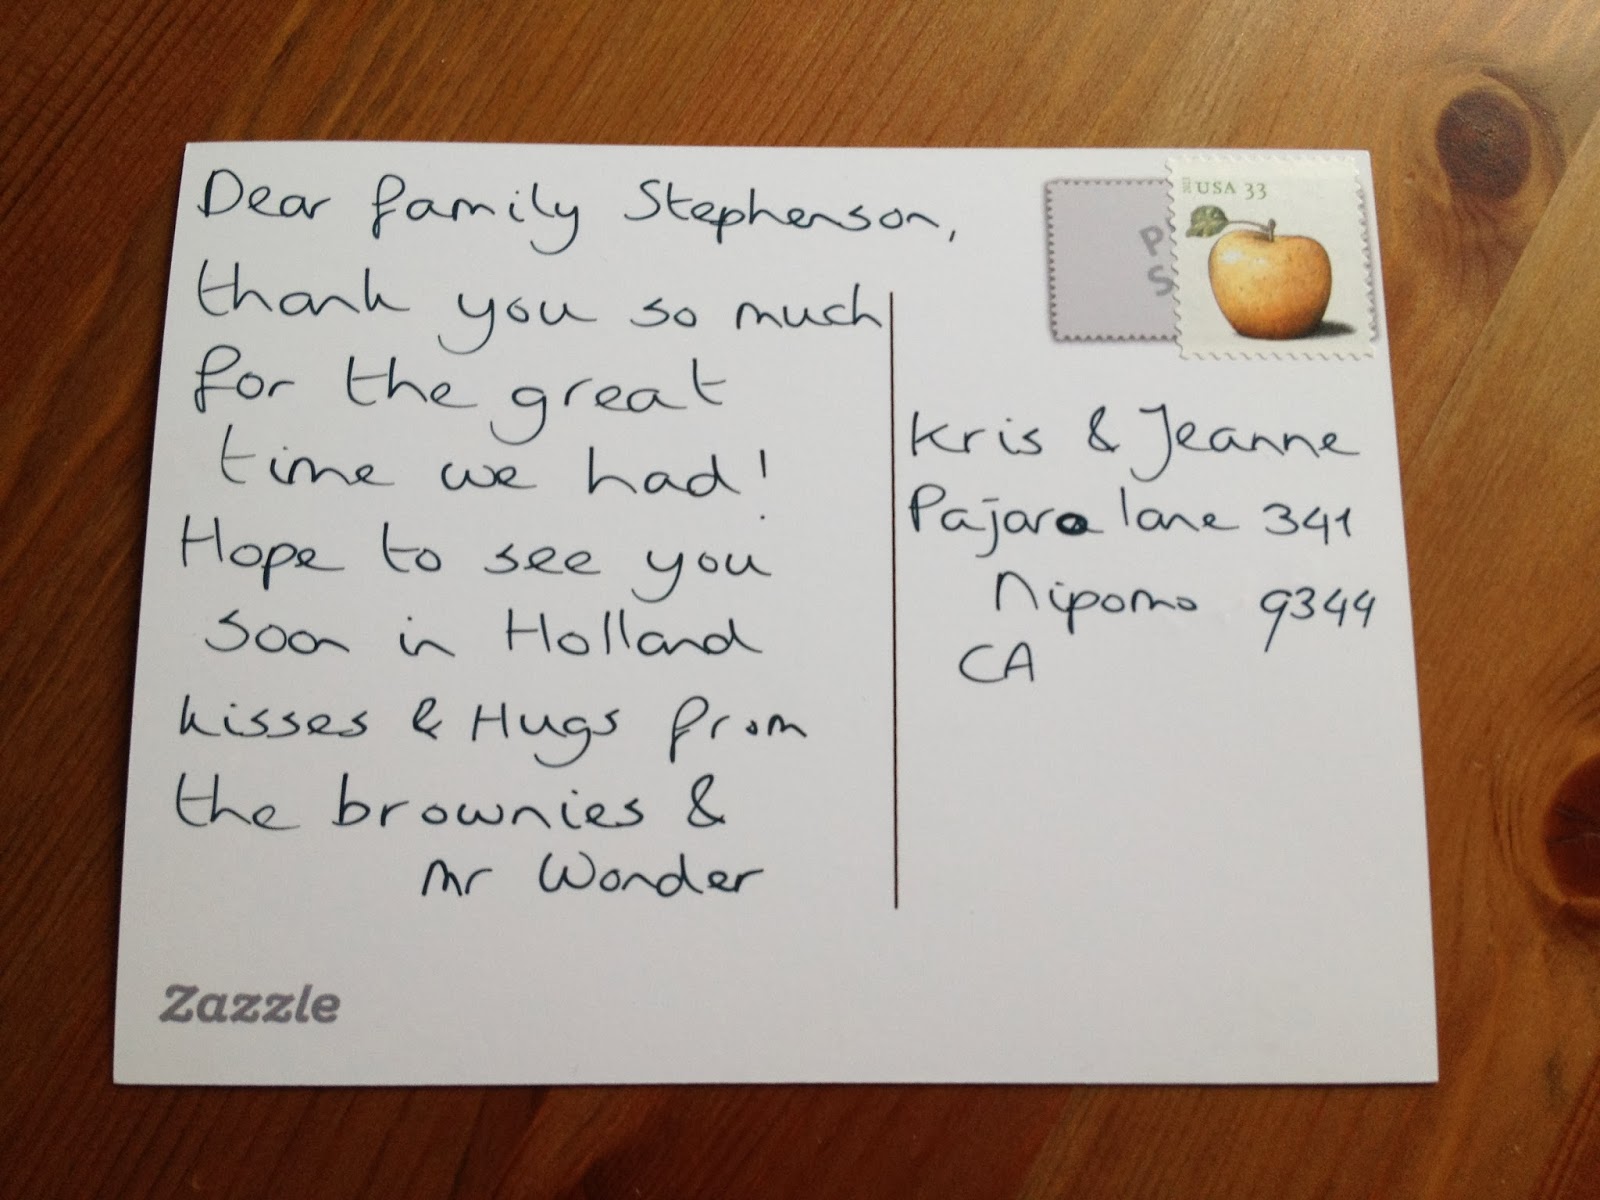 Dear family Stephenson,
thank you so much
for the great
time we had!
Hope to see you
soon in Holland
kisses & Hugs from
the brownies &
Mr Wonder
Zazzle
P
S
2013
USA 33
Kris & Jeanne
Pajaro lane 341
Nipomo 9344
CA